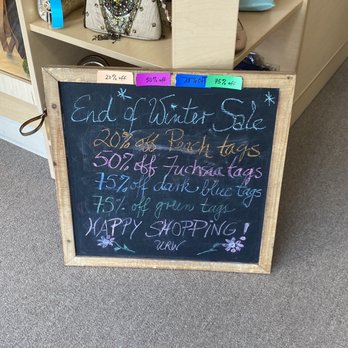 20% off 50% off 75% off
End of Winter Sale
20% off Peach tags
50% off Fuchsia tags
75% off dark blue tags
75% off green tags
HAPPY SHOPPING!
URW